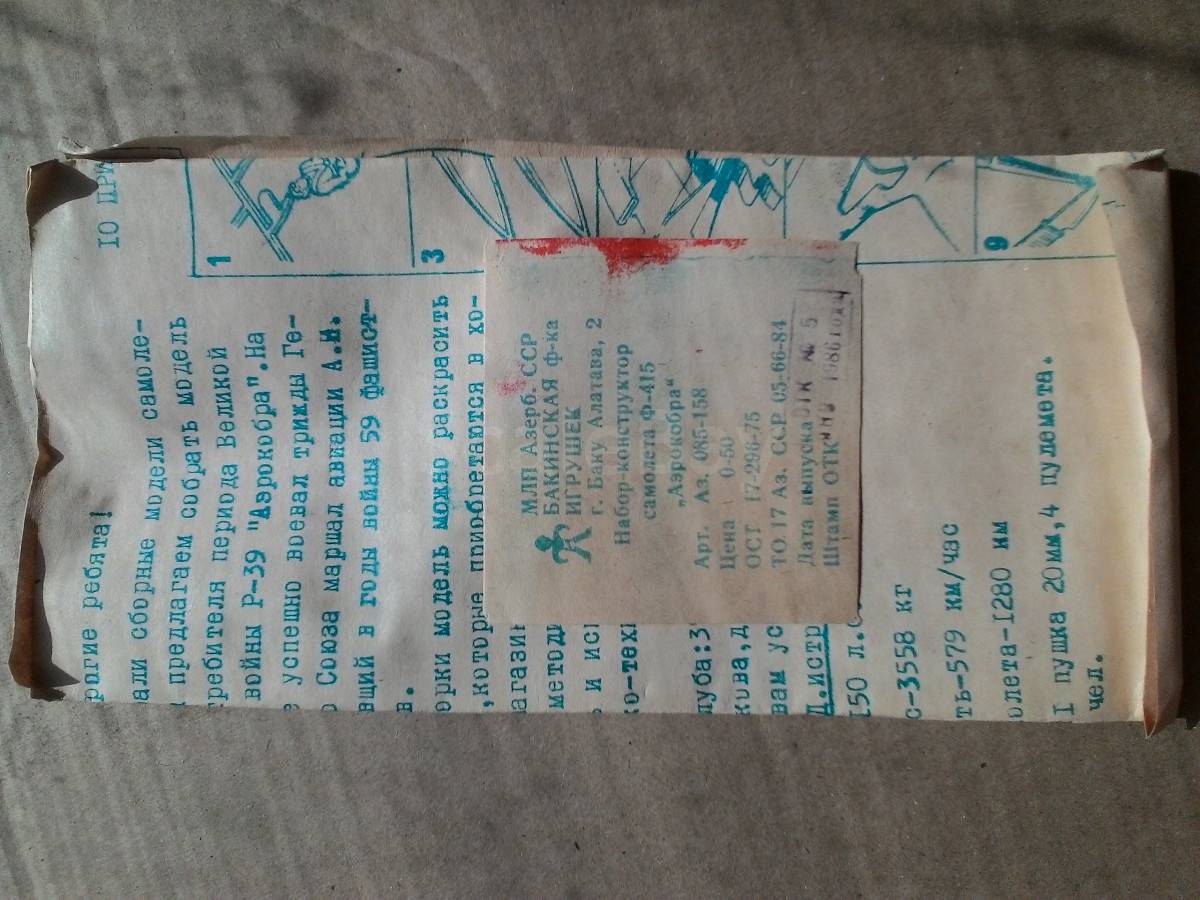 рогие ребята!
али сборные модели самоле-
предлагаем собрать модель
требителя периода Великой
войны Р-39 "Аэрокобра".На
е успешно воевал трижды Ге-
о Союза маршал авиации А.И.
вщий в годы войны 59 фашист-
в.
орки модель можно раскрасить
,которые приобретаются в хо-
агазин
методи
и исп
ко-техн
луба:3
кова,д
вам ус
Д.истр
150 л.с
с-3558 кг
ть-579 км/час
олета-1280 км
1 пушка 20мм,4 пулемета.
чел.
МЛП Азерб. ССР
БАКИНСКАЯ ф-ка
ИГРУШЕК
г. Баку Алатава, 2
Набор-конструктор
самолета Ф-415
„Аэрокобра“
Арт. Аз. 085-158
Цена 0-50
ОСТ 17-296-75
ТО. 17 Аз. ССР 05-66-84
Дата выпуска ОТК № 5
Штамп ОТК 1986 год
10 ПРИ
1
3
9